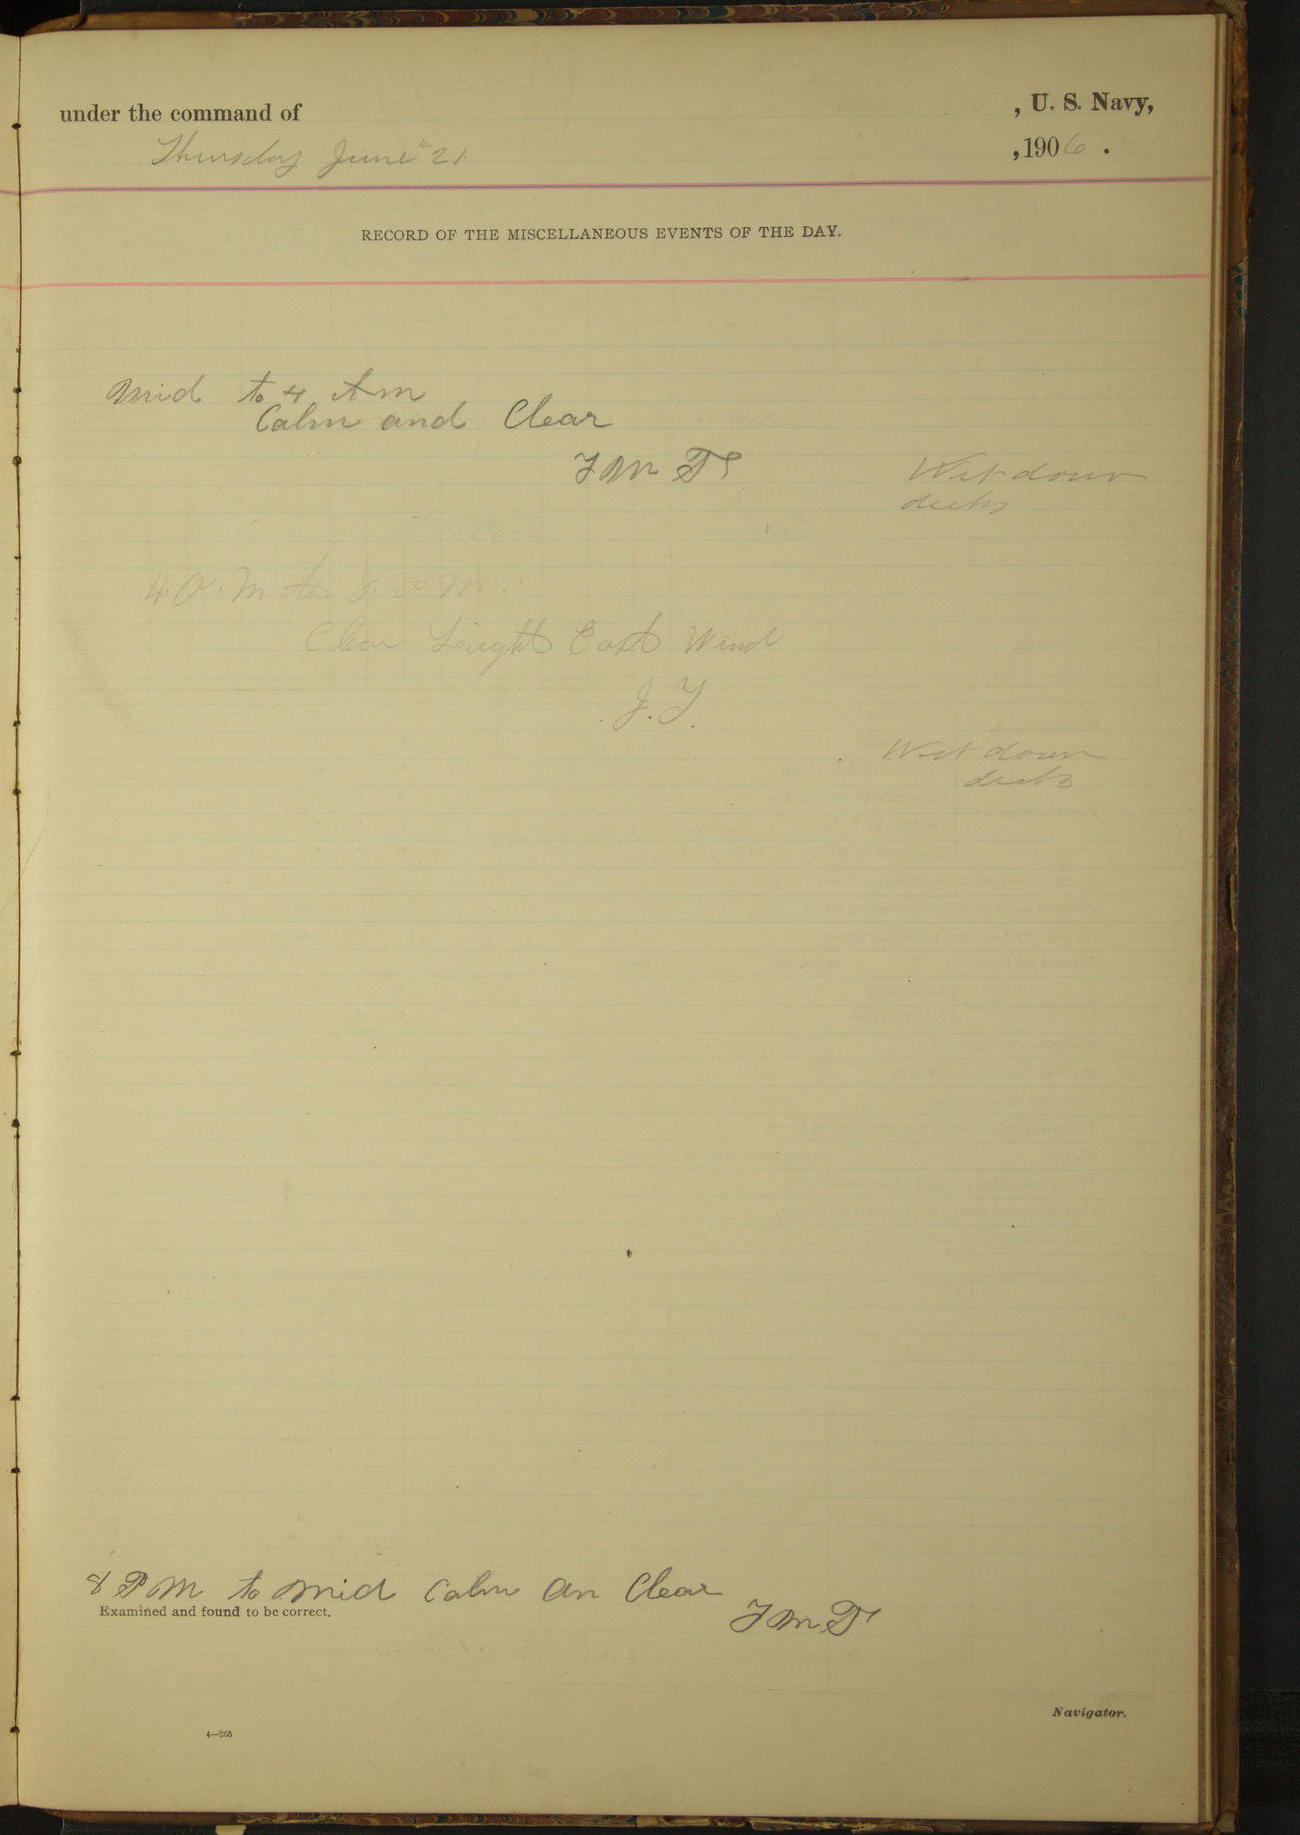 under the command of , U. S. Navy,
Thursday June 21 , 1906 .
RECORD OF THE MISCELLANEOUS EVENTS OF THE DAY.
Mid to 4 Am
Calm and Clear
Wet down
decks
4. A. M to 8. A M.
Clear Leight East Wind
J. Y.
Wet down
decks
8 P M to Mid Calm an Clear
Examined and found to be correct.
Navigator.
4—265